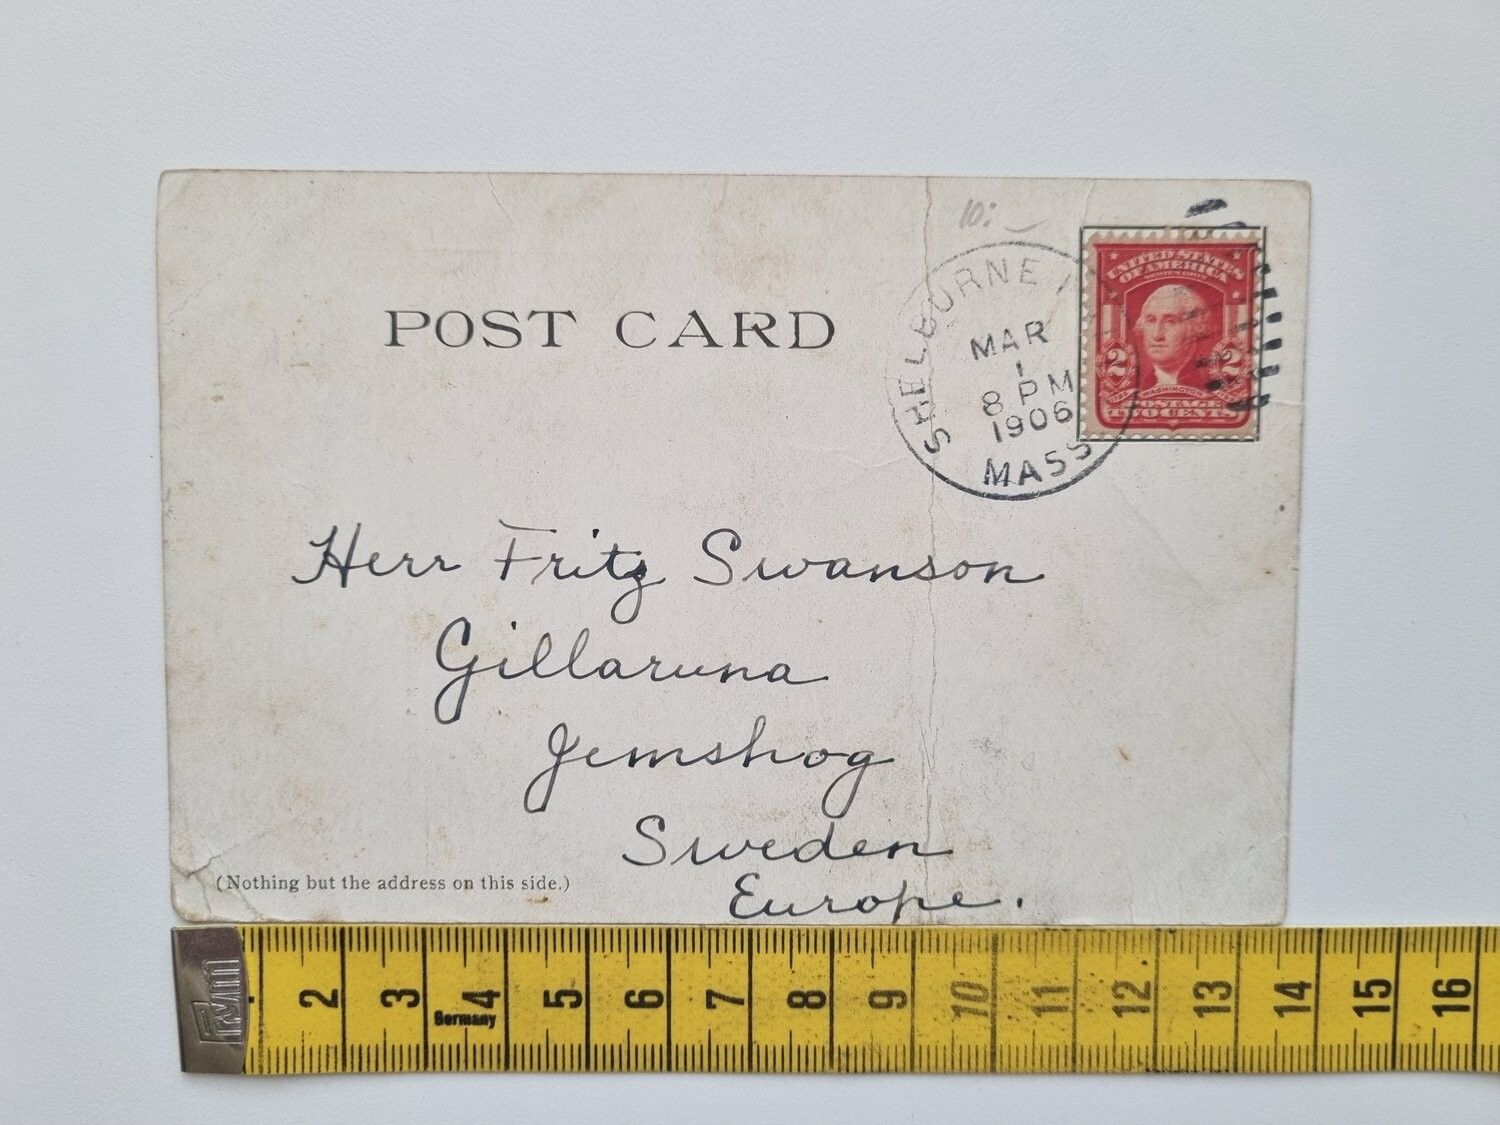 POST CARD
10:
SHELBURNE
MAR
1
8 PM
1906
MASS
UNITED STATES
OF AMERICA
2 2
WASHINGTON
POSTAGE
TWO CENTS
Herr Fritz Swanson
Gillaruna
Jemshog
Sweden
Europe.
(Nothing but the address on this side.)
Prym
1 2 3 4 5 6 7 8 9 10 11 12 13 14 15 16
Germany